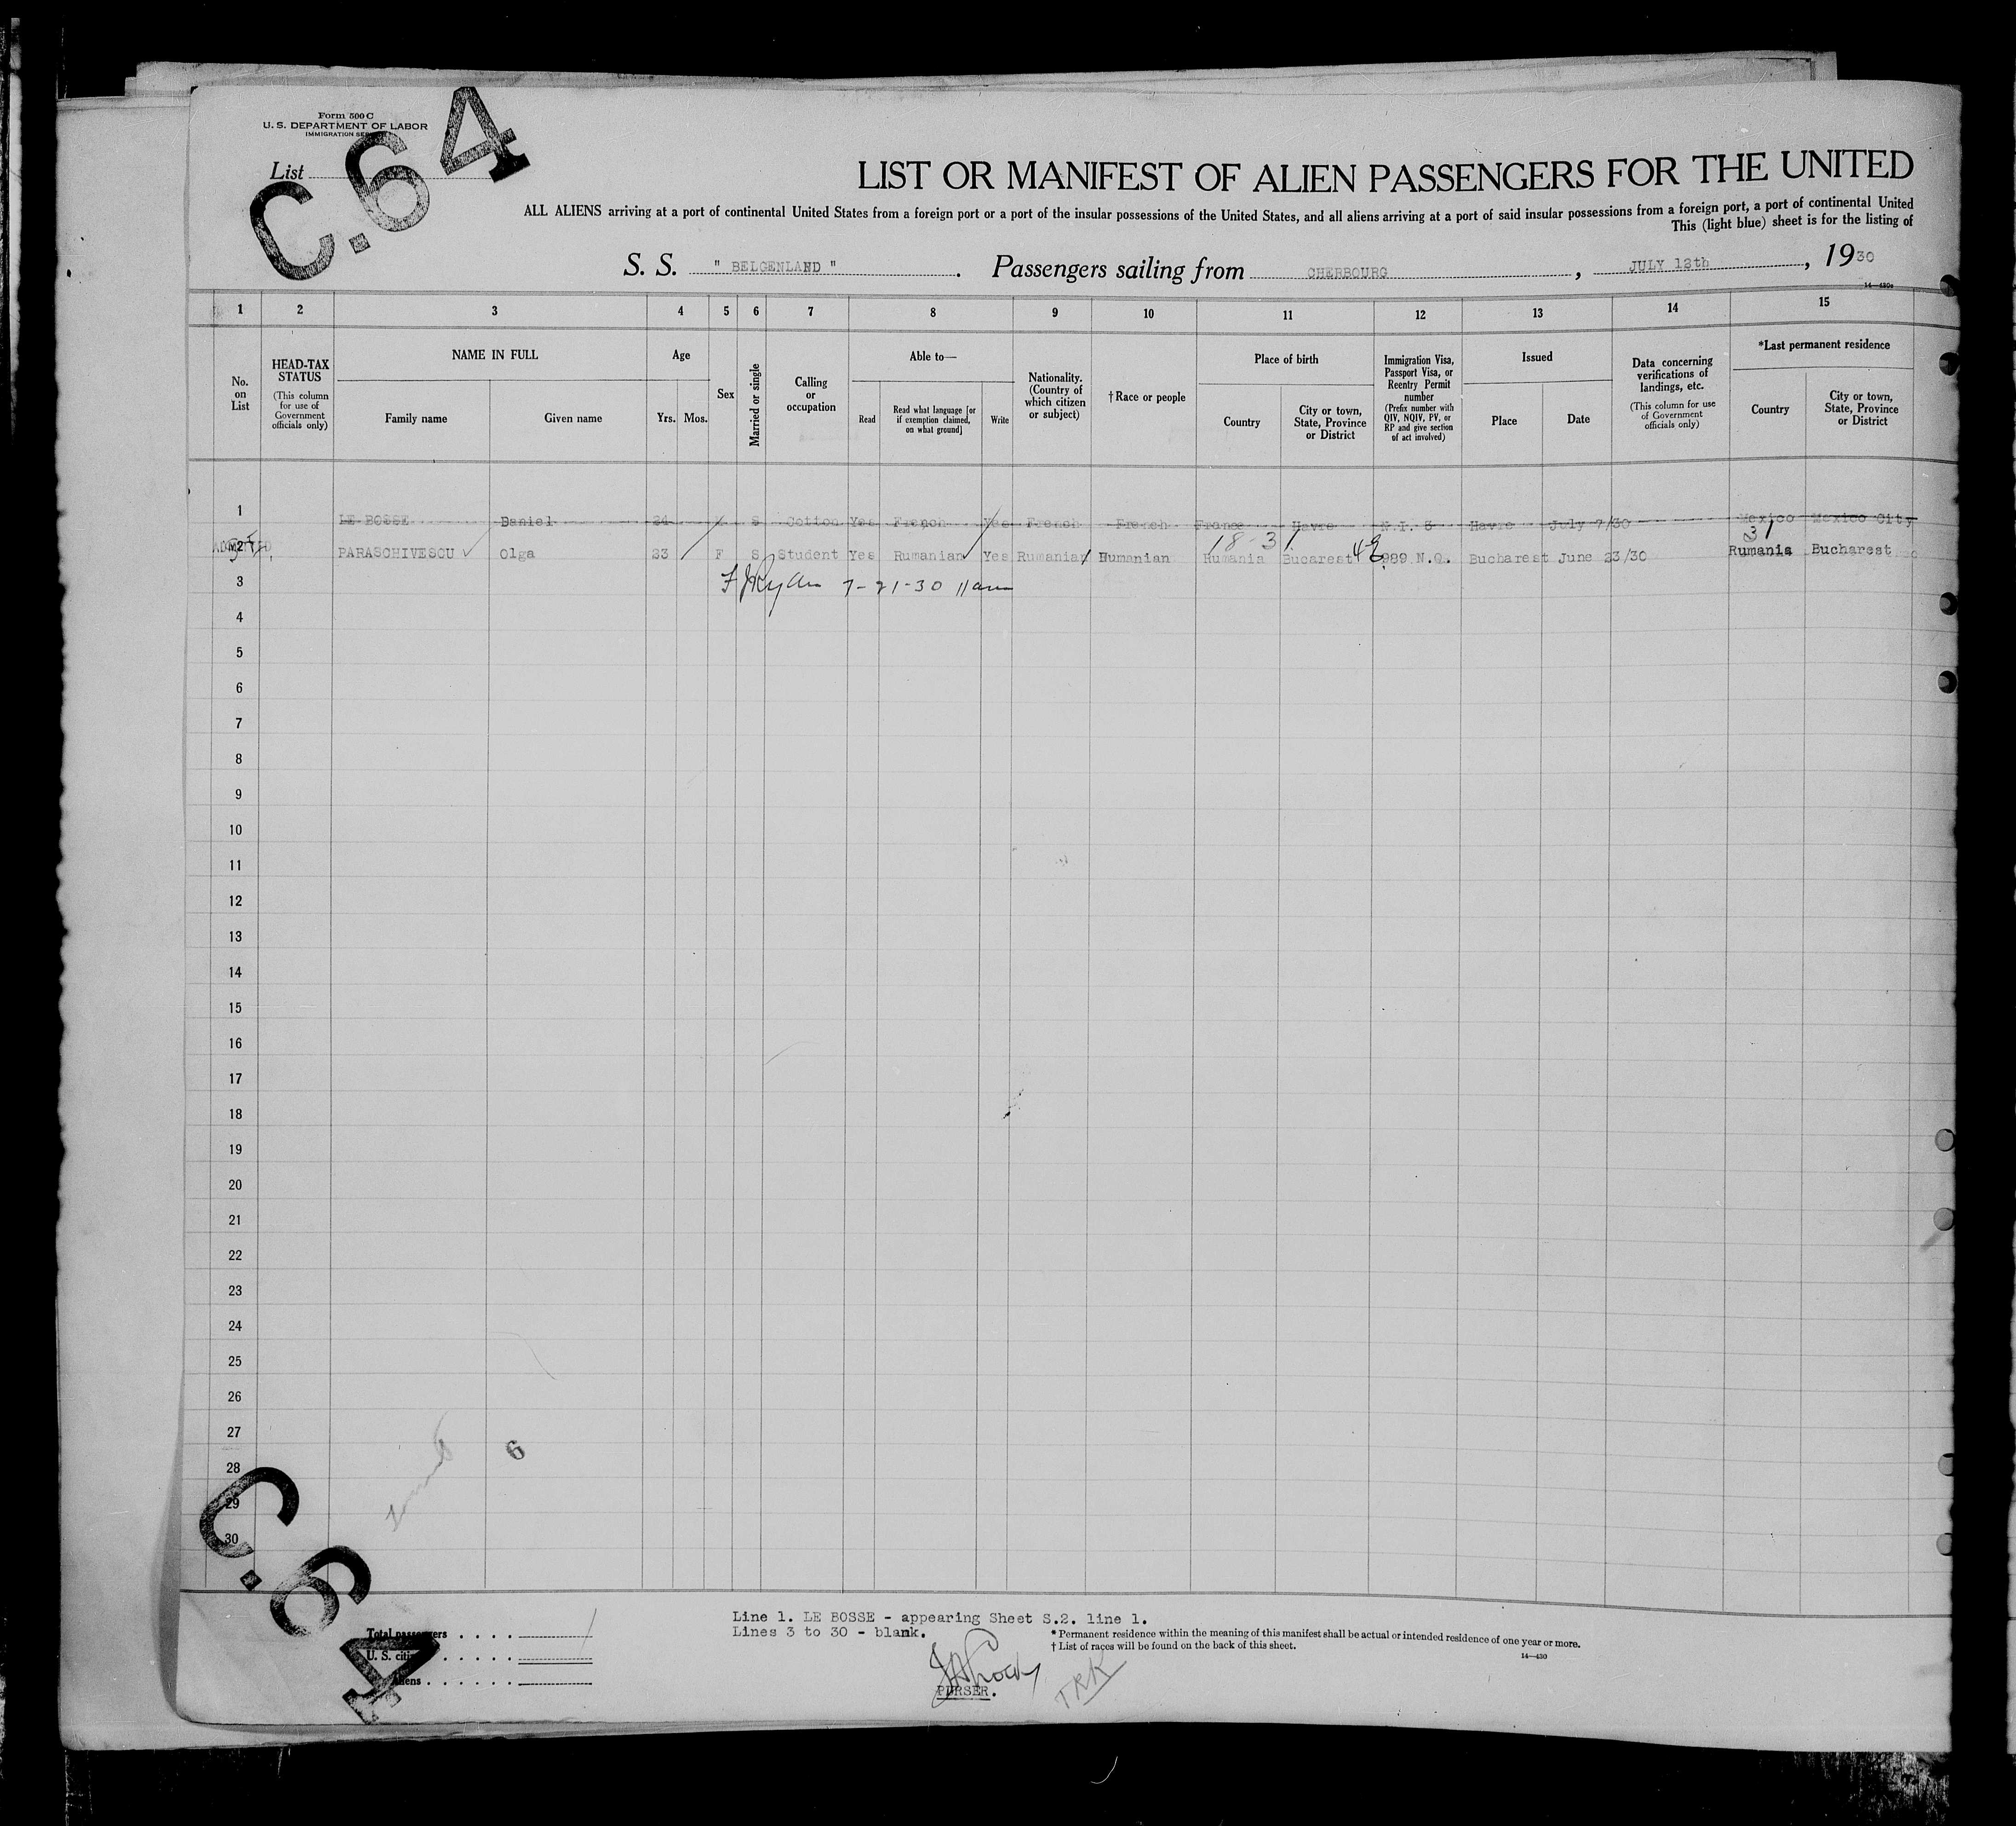 Form 500 C
U. S. DEPARTMENT OF LABOR
IMMIGRATION
List
C.64
LIST OR MANIFEST OF ALIEN PASSENGERS FOR THE UNITED
ALL ALIENS arriving at a port of continental United States from a foreign port or a port of the insular possessions of the United States, and all aliens arriving at a port of said insular possessions from a foreign port, a port of continental United
This (light blue) sheet is for the listing of
S. S. " BELGENLAND ". Passengers sailing from CHERBOURG, JULY 12th, 1930
14—430a
1 2 3 4 5 6 7 8 9 10 11 12 13 14 15
No. on List
HEAD-TAX STATUS (This column for use of Government officials only)
NAME IN FULL Family name Given name
Age Yrs. Mos.
Sex
Married or single
Calling or occupation
Able to— Read Read what language [or if exemption claimed, on what ground] Write
Nationality. (Country of which citizen or subject)
†Race or people
Place of birth Country City or town, State, Province or District
Immigration Visa, Passport Visa, or Reentry Permit number (Prefix number with QIV, NQIV, PV, or RP and give section of act involved)
Issued Place Date
Data concerning verifications of landings, etc. (This column for use of Government officials only)
*Last permanent residence Country City or town, State, Province or District
1 LE BOSSE Daniel 24 S Cotton Yes French Yes French French France Havre N.I. 3 Havre July 7/30 Mexico Mexico City
18-31 31
2 PARASCHIVESCU Olga 23 F S Student Yes Rumanian Yes Rumania Rumanian Rumania Bucarest 989 N.Q. Bucharest June 23/30 Rumania Bucharest
3 7-21-30 11am
4
5
6
7
8
9
10
11
12
13
14
15
16
17
18
19
20
21
22
23
24
25
26
27
6
28
29
30
C.64
Total passengers
U. S. citi
Aliens
Line 1. LE BOSSE - appearing Sheet S.2. line 1.
Lines 3 to 30 - blank.
* Permanent residence within the meaning of this manifest shall be actual or intended residence of one year or more.
† List of races will be found on the back of this sheet.
14—430
PURSER.
TRK